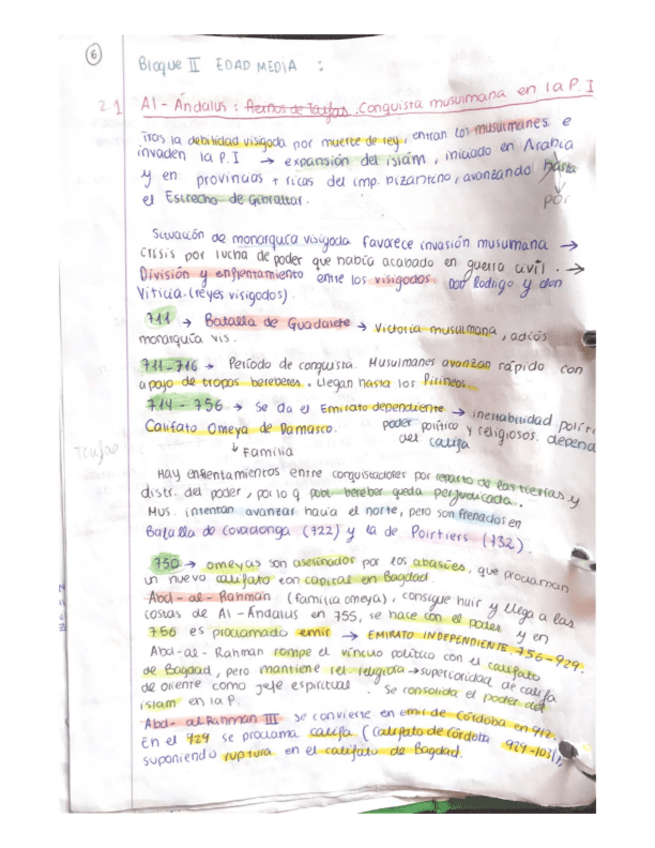 6
Bloque II EDAD MEDIA :
2.1 Al-Ándalus: Reinos de Taifas. Conquista musulmana en la P. I
Tras la debilidad visigoda por muerte de rey, entran los musulmanes e
invaden la P.I → expansión del islam, iniciado en Arabia
y en provincias + ricas del imp. bizantino, avanzando hasta
por
el Estrecho de Gibraltar.
Situación de monarquía visigoda favorece invasión musumana →
crisis por lucha de poder que había acabado en guerra civil. →
División y enfrentamiento entre los visigodos Don Rodrigo y don
Viticia. (reyes visigodos).
711 → Batalla de Guadalete → Victoria musulmana, adiós
monarquía vis.
711-716 → Período de conquista. Musulmanes avanzan rápido con
apoyo de tropas bereberes. Llegan hasta los Pirineos.
714-756 → Se da el Emirato dependiente → inestabilidad políti
Califato Omeya de Damasco. poder político y religiosos. depend
del califa
Taifas
↓ Familia
Hay enfrentamientos entre conquistadores por reparto de las tierras y
distr. del poder, por lo q pobl. bereber queda perjudicada.
Mus. intentan avanzar hacia el norte, pero son frenados en
Batalla de Covadonga (722) y la de Poirtiers (732).
750 → omeyas son asesinados por los abasíes, que proclaman
un nuevo califato con capital en Bagdad.
Abd-al-Rahman (familia omeya), consigue huir y llega a las
costas de Al-Ándalus en 755, se hace con el poder y en
756 es proclamado emir → EMIRATO INDEPENDIENTE. 756-929.
Abd-al-Rahman rompe el vínculo político con el califato
de Bagdad, pero mantiene rel. religiosa → superioridad de califa
de oriente como jefe espiritual. Se consolida el poder del
islam en la P.
Abd-al Rahman III se convierte en emir de Córdoba en 912.
En el 929 se proclama califa (califato de Córdoba 929-1031),
suponiendo ruptura en el califato de Bagdad.